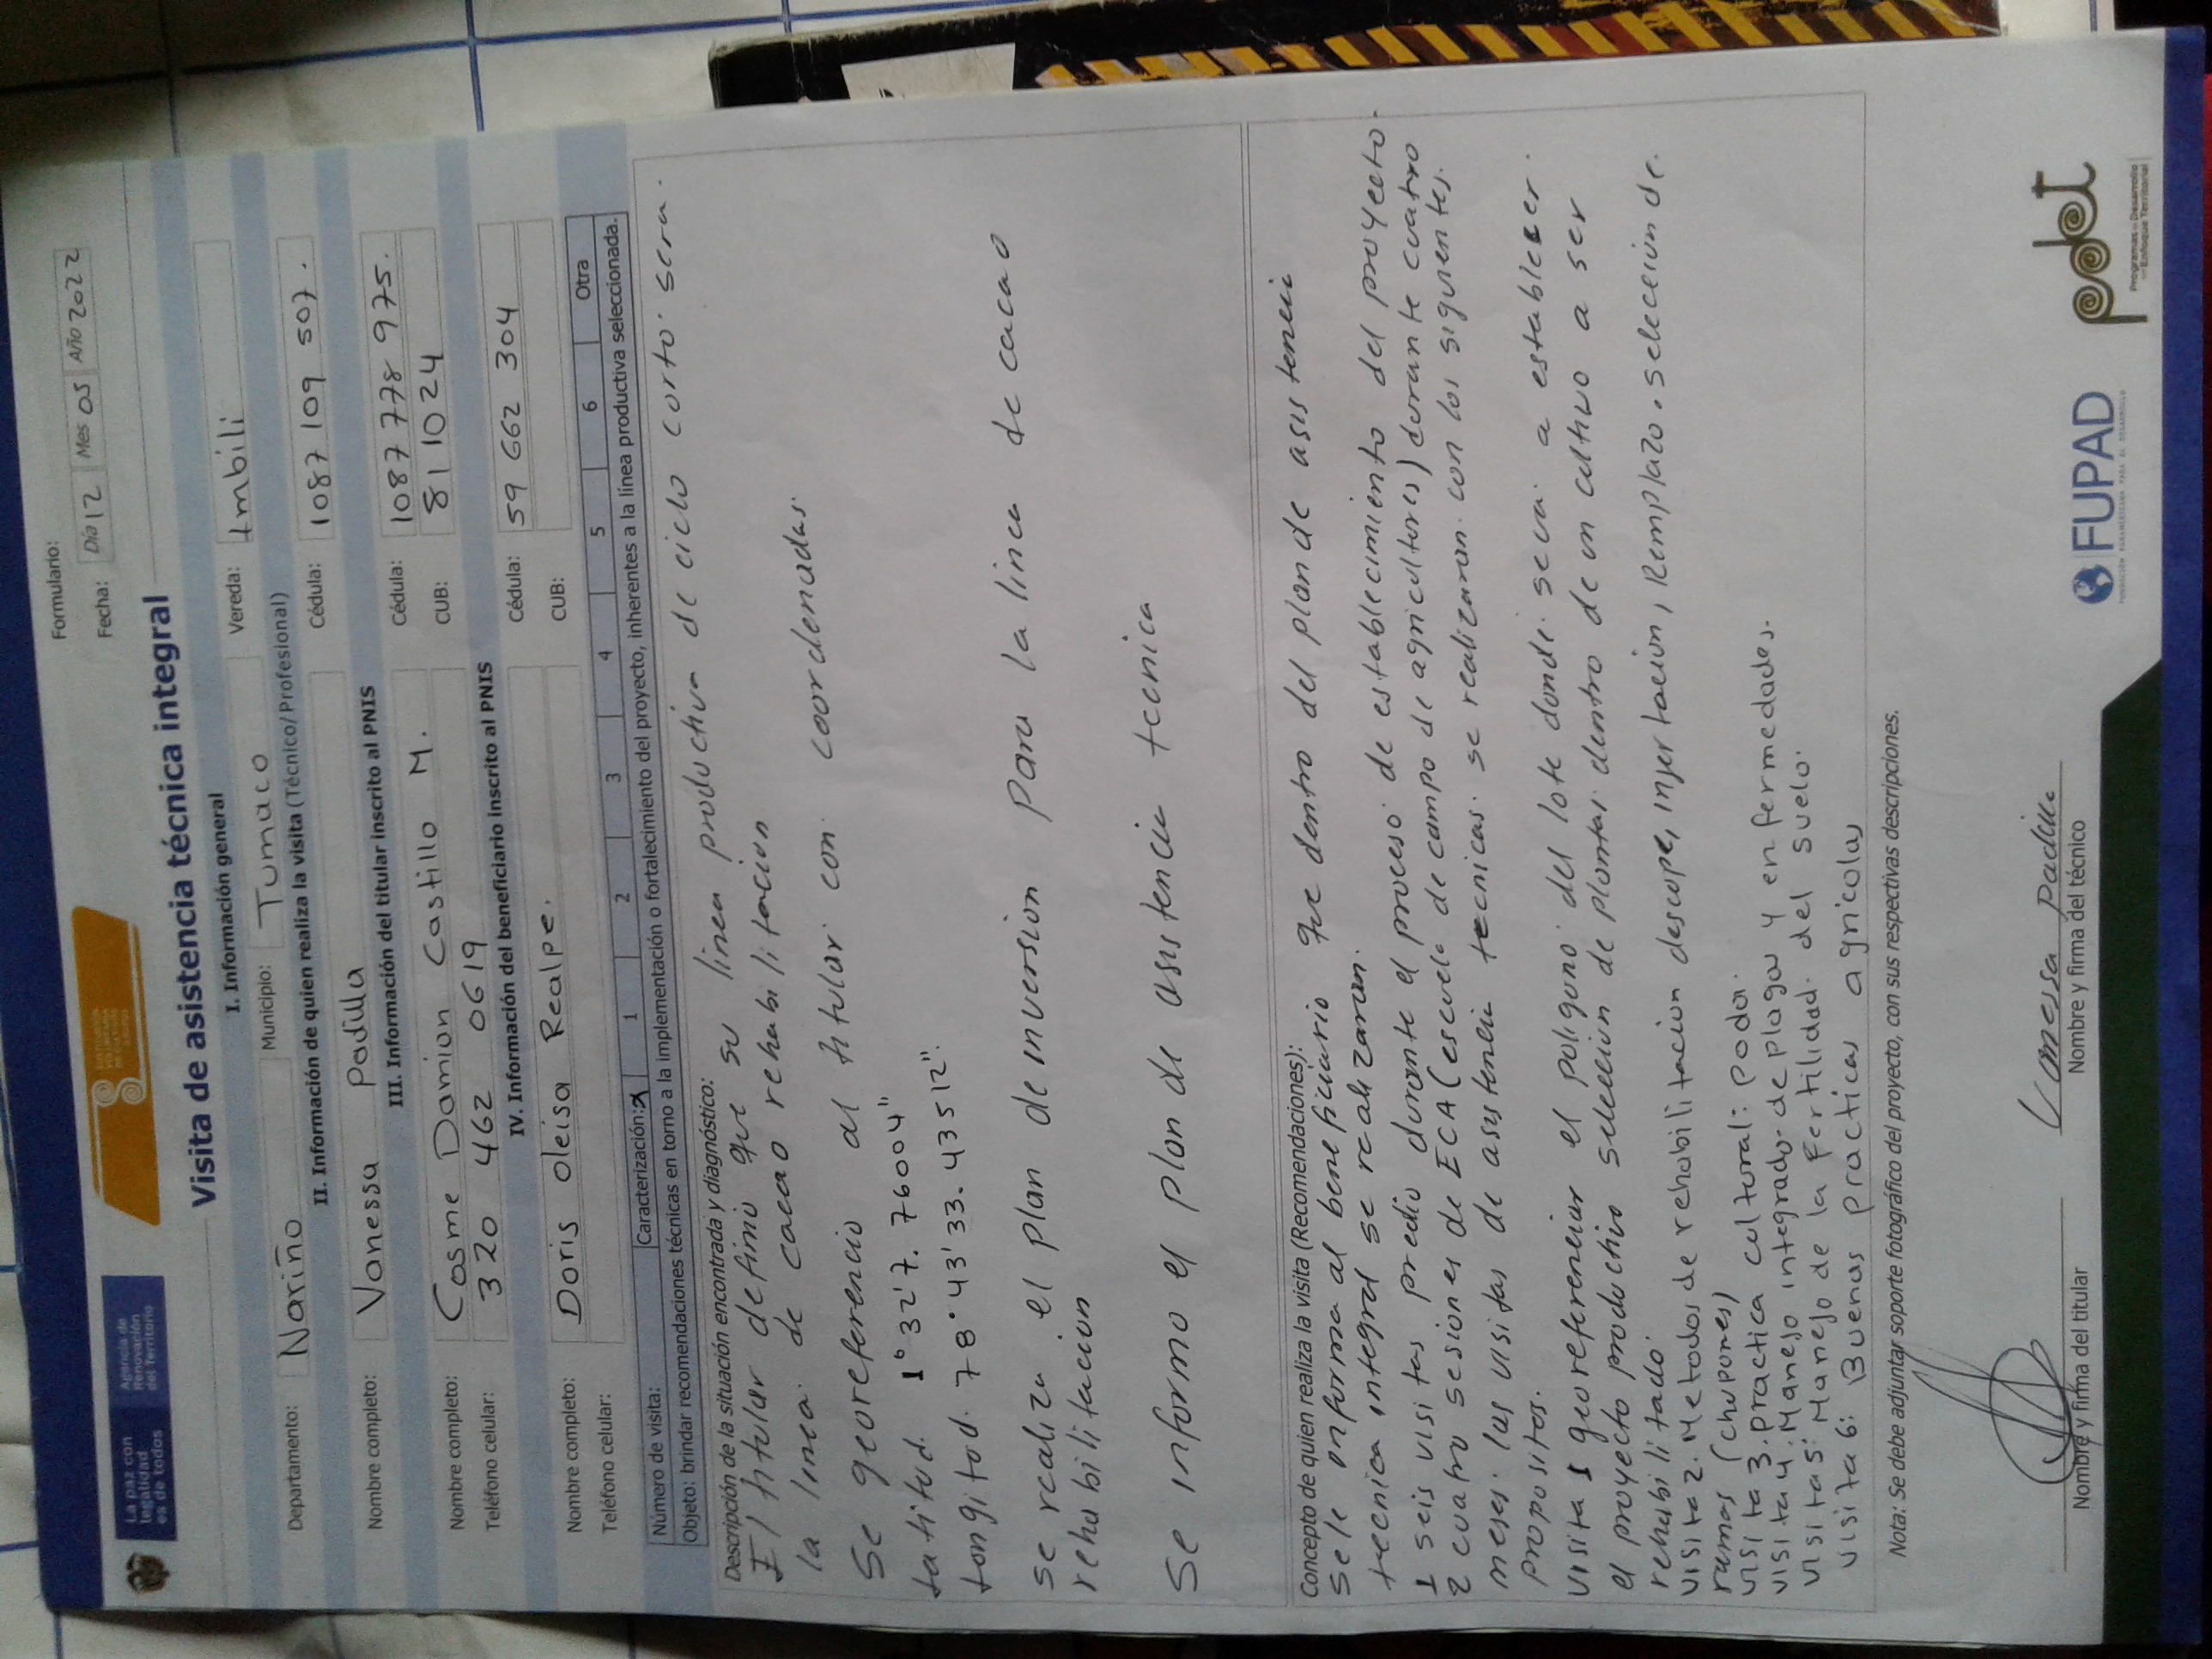 La paz con
legalidad
es de todos
Agencia de
Renovación
del Territorio
Formulario:
Fecha: Día 12 Mes 05 Año 2022
Visita de asistencia técnica integral
I. Información general
Departamento: Nariño Municipio: Tumaco Vereda: Imbili
II. Información de quien realiza la visita (Técnico/Profesional)
Nombre completo: Vanessa Padilla Cédula: 1087 109 507.
III. Información del titular inscrito al PNIS
Nombre completo: Cosme Damion Castillo M. Cédula: 1087 778 975.
Teléfono celular: 320 462 0619 CUB: 81 1024
IV. Información del beneficiario inscrito al PNIS
Nombre completo: Doris Oleisa Realpe. Cédula: 59 662 304
Teléfono celular: CUB:
Número de visita: Caracterización: x 1 2 3 4 5 6 Otra
Objeto: brindar recomendaciones técnicas en torno a la implementación o fortalecimiento del proyecto, inherentes a la línea productiva seleccionada.
Descripción de la situación encontrada y diagnóstico:
El titular definio que su linea productiva de ciclo corto. sera.
la linea. de cacao rehabilitacion
Se georeferencio al titular con coordenadas.
Latitud. 1° 32' 7. 76004"
Longitud. 78° 43' 33. 43512".
se realizo el plan de inversion Para la linea de cacao
rehabilitacion
Se informo el plan de asistencia tecnica
Concepto de quien realiza la visita (Recomendaciones):
Se le informa al beneficiario que dentro del plan de asistencia
tecnica integral se realizaran.
1 seis visitas predio durante el proceso. de establecimiento del proyecto.
2 cuatro sesiones de ECA (escuela de campo de agricultores) durante cuatro
meses. las visitas de asistencia tecnicas. se realizaran con los siguientes.
propositos.
Visita 1 georeferenciar el poligono del lote donde. se va. a establecer.
el proyecto productivo seleccion de plantas. dentro de un cultivo a ser
rehabilitado.
Visita 2. Metodos de rehabilitacion descope, injertacion, Remplazo. seleccion de.
ramas (chupones)
Visita 3. practica cultural: poda.
visita 4. Manejo integrado. de plagas y enfermedades.
Visita 5: Manejo de la fertilidad. del suelo.
Visita 6: Buenas practicas agricolas
Nota: Se debe adjuntar soporte fotográfico del proyecto, con sus respectivas descripciones.
Vanessa Padilla
Nombre y firma del titular Nombre y firma del técnico
FUPAD
FUNDACIÓN PANAMERICANA PARA EL DESARROLLO
pdet
Programas de Desarrollo
con Enfoque Territorial